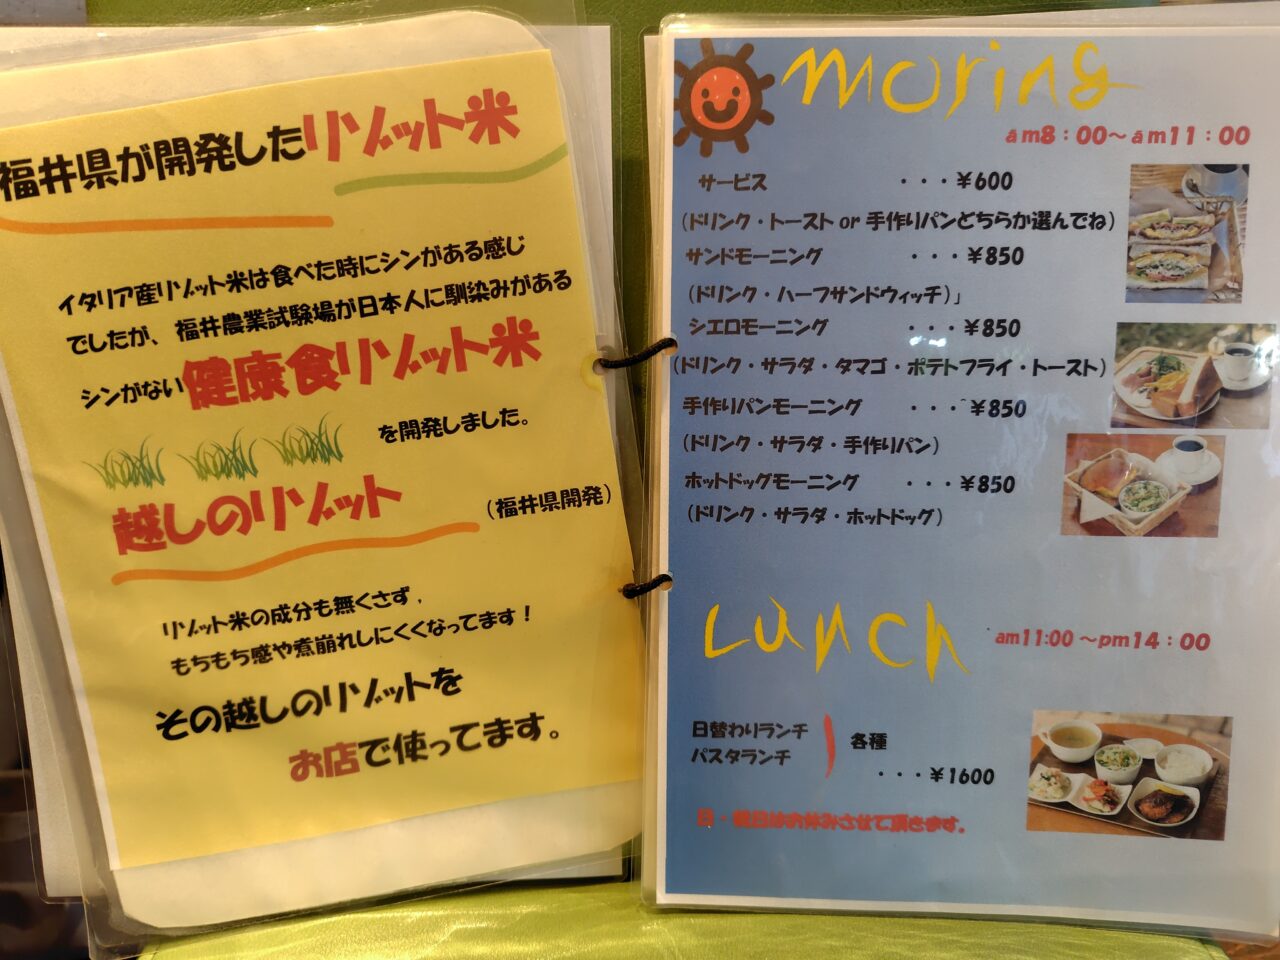 福井県が開発したリゾット米
イタリア産リゾット米は食べた時にシンがある感じ
でしたが、福井農業試験場が日本人に馴染みがある
シンがない健康食リゾット米
を開発しました。
越しのリゾット
（福井県開発）
リゾット米の成分も無くさず，
もちもち感や煮崩れしにくくなってます！
その越しのリゾットを
お店で使ってます。
moring
ám8：00～ám11：00
サービス ・・・¥600
（ドリンク・トースト or 手作りパンどちらか選んでね）
サンドモーニング ・・・¥850
（ドリンク・ハーフサンドウィッチ）」
シエロモーニング ・・・¥850
（ドリンク・サラダ・タマゴ・ポテトフライ・トースト）
手作りパンモーニング ・・・¥850
（ドリンク・サラダ・手作りパン）
ホットドッグモーニング ・・・¥850
（ドリンク・サラダ・ホットドッグ）
Lunch
am11:00 ～pm14：00
日替わりランチ
パスタランチ
各種
・・・¥1600
日・祝日はお休みさせて頂きます。